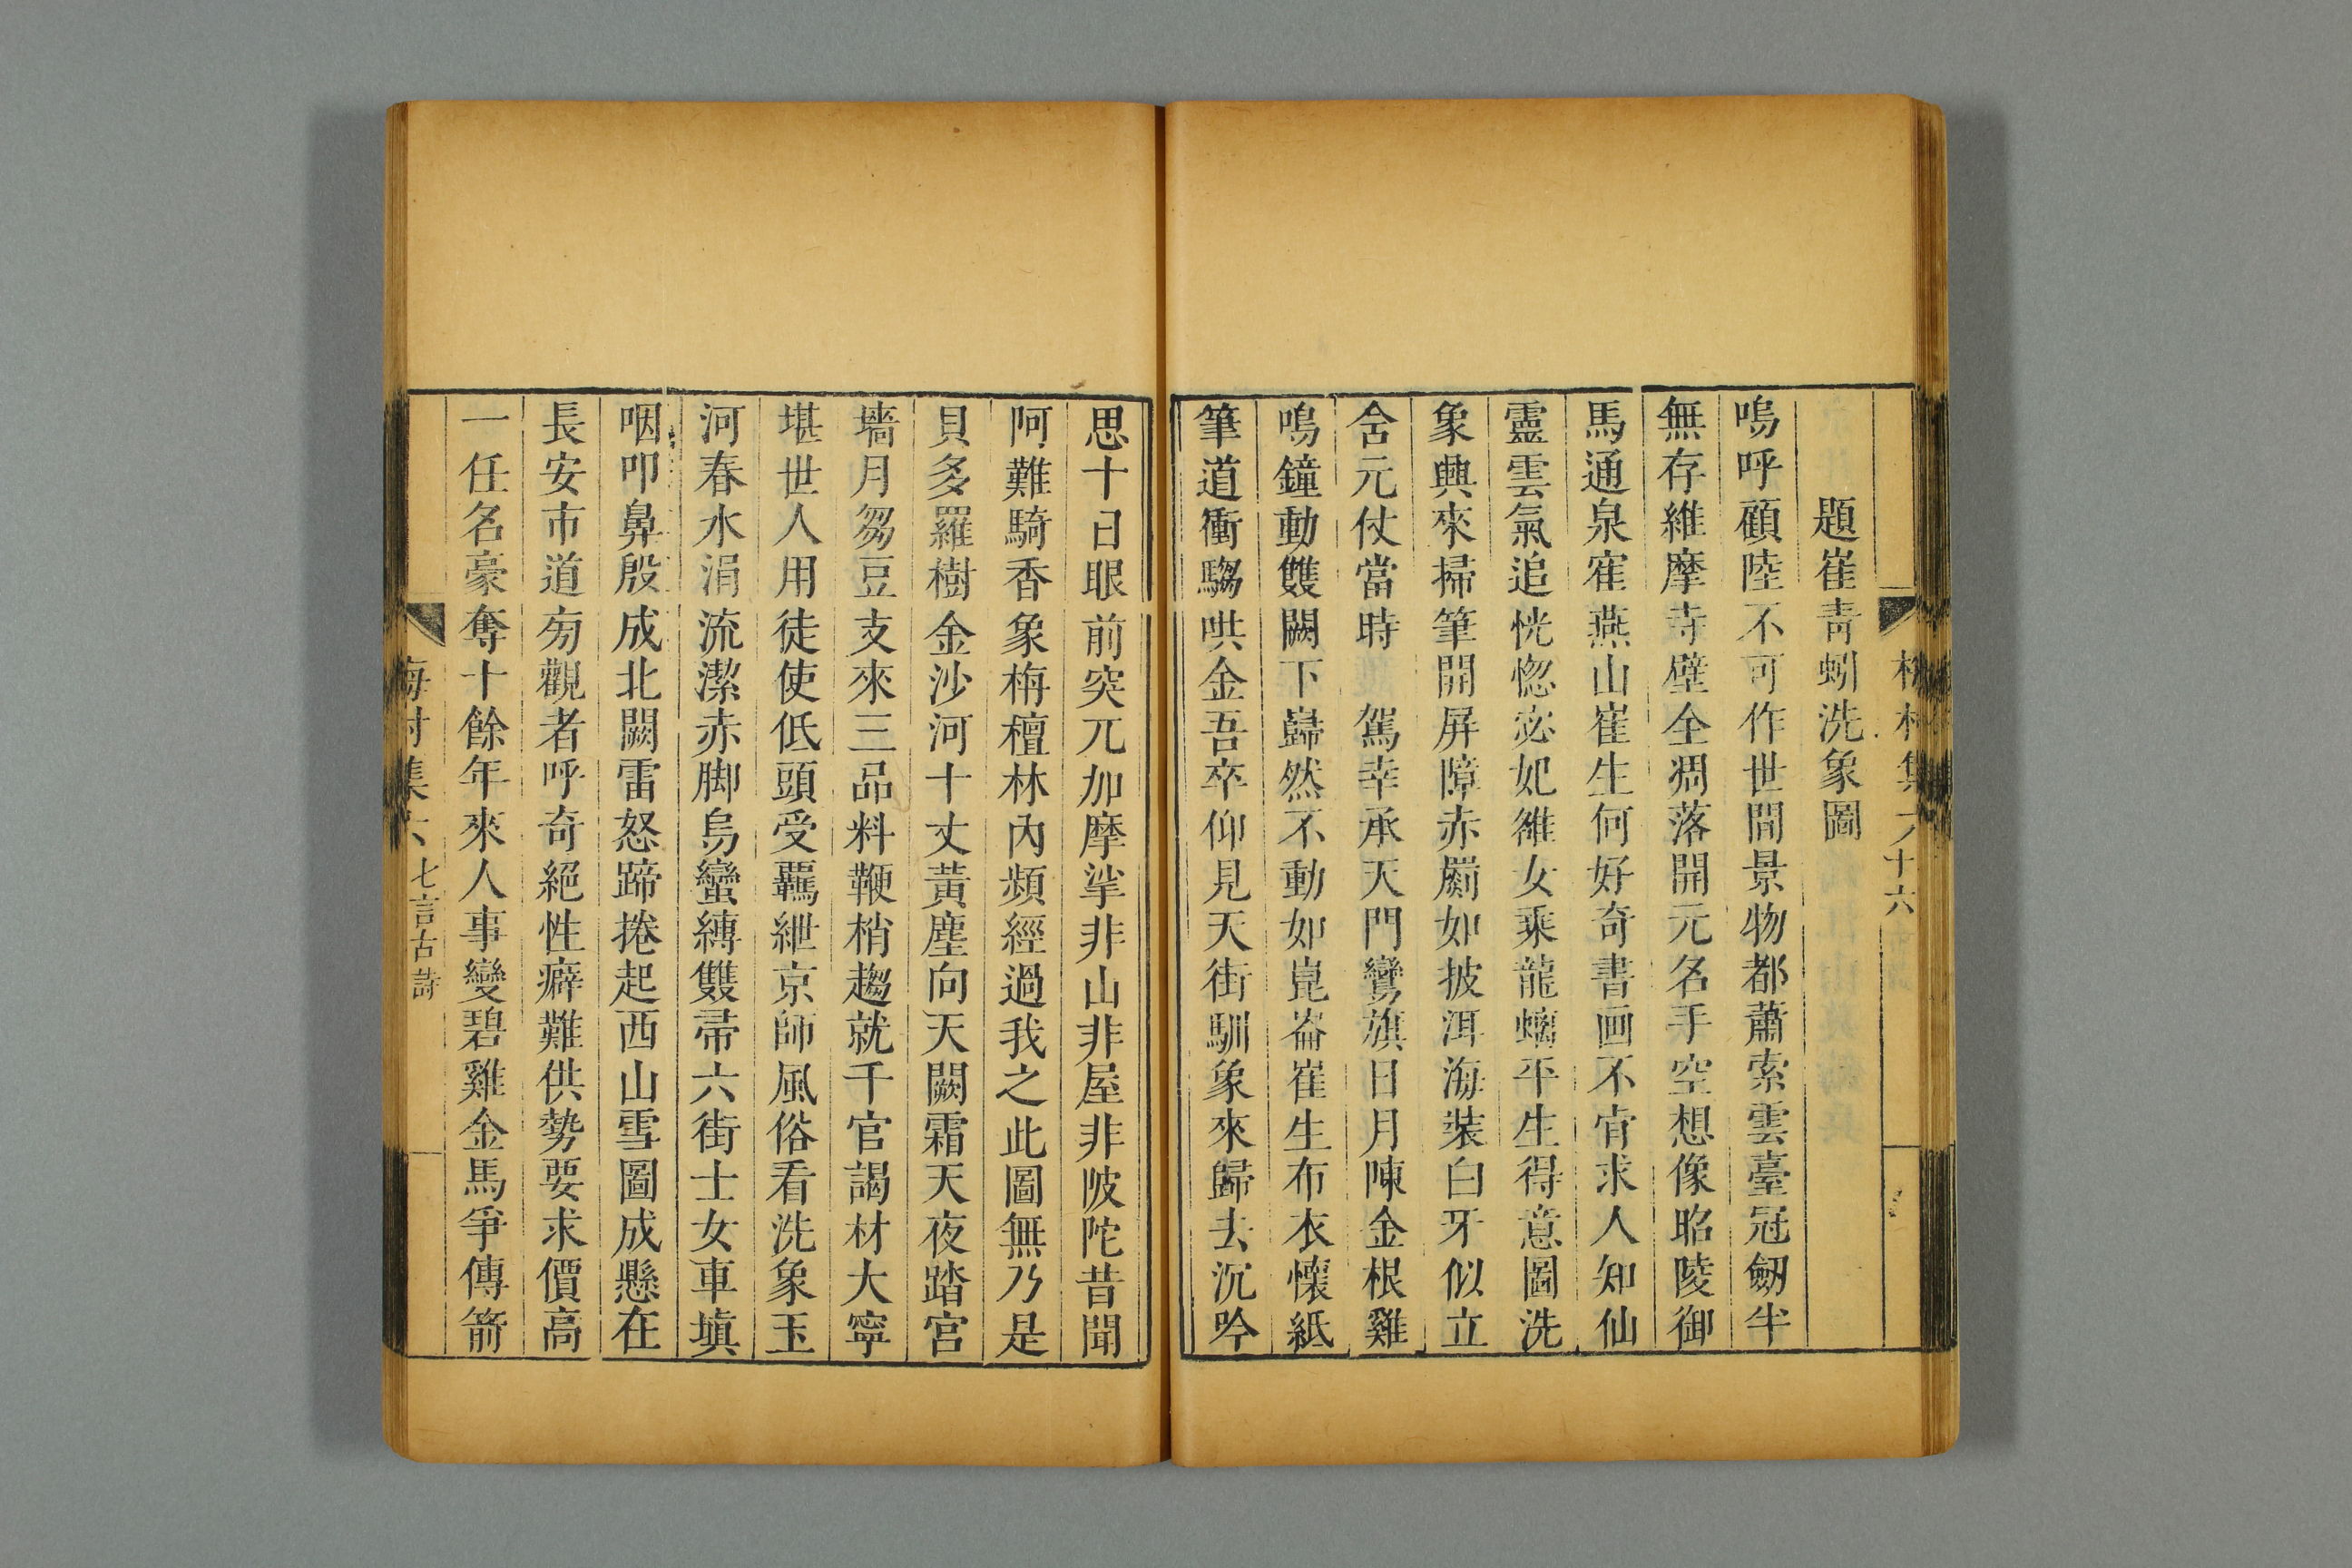 題崔青蚓洗象圖
嗚呼顧陸不可作世間景物都蕭索雲臺冠劒半
無存維摩寺壁全凋落開元名手空想像昭陵御
馬通泉寉燕山崔生何好奇書画不肯求人知仙
靈雲氣追恍惚宓妃雒女乘龍螭平生得意圖洗
象興來掃筆開屏障赤罽如披洱海装白牙似立
含元仗當時 駕幸承天門鸞旗日月陳金根雞
鳴鐘動雙闕下巋然不動如崑崙崔生布衣懷紙
筆道衝騶哄金吾卒仰見天街馴象來歸去沉吟
思十日眼前突兀加摩挲非山非屋非陂陀昔聞
阿難騎香象栴檀林內頻經過我之此圖無乃是
貝多羅樹金沙河十丈黃塵向天闕霜天夜踏宮
墻月芻豆支來三品料鞭梢趨就千官謁材大寧
堪世人用徒使低頭受羈紲京師風俗看洗象玉
河春水涓流潔赤脚烏蠻縛雙帚六街士女車塡
咽叩鼻殷成北闕雷怒蹄捲起西山雪圖成懸在
長安市道旁觀者呼奇絕性癖難供勢要求價高
一任名豪奪十餘年來人事變碧雞金馬爭傳箭
七言古詩